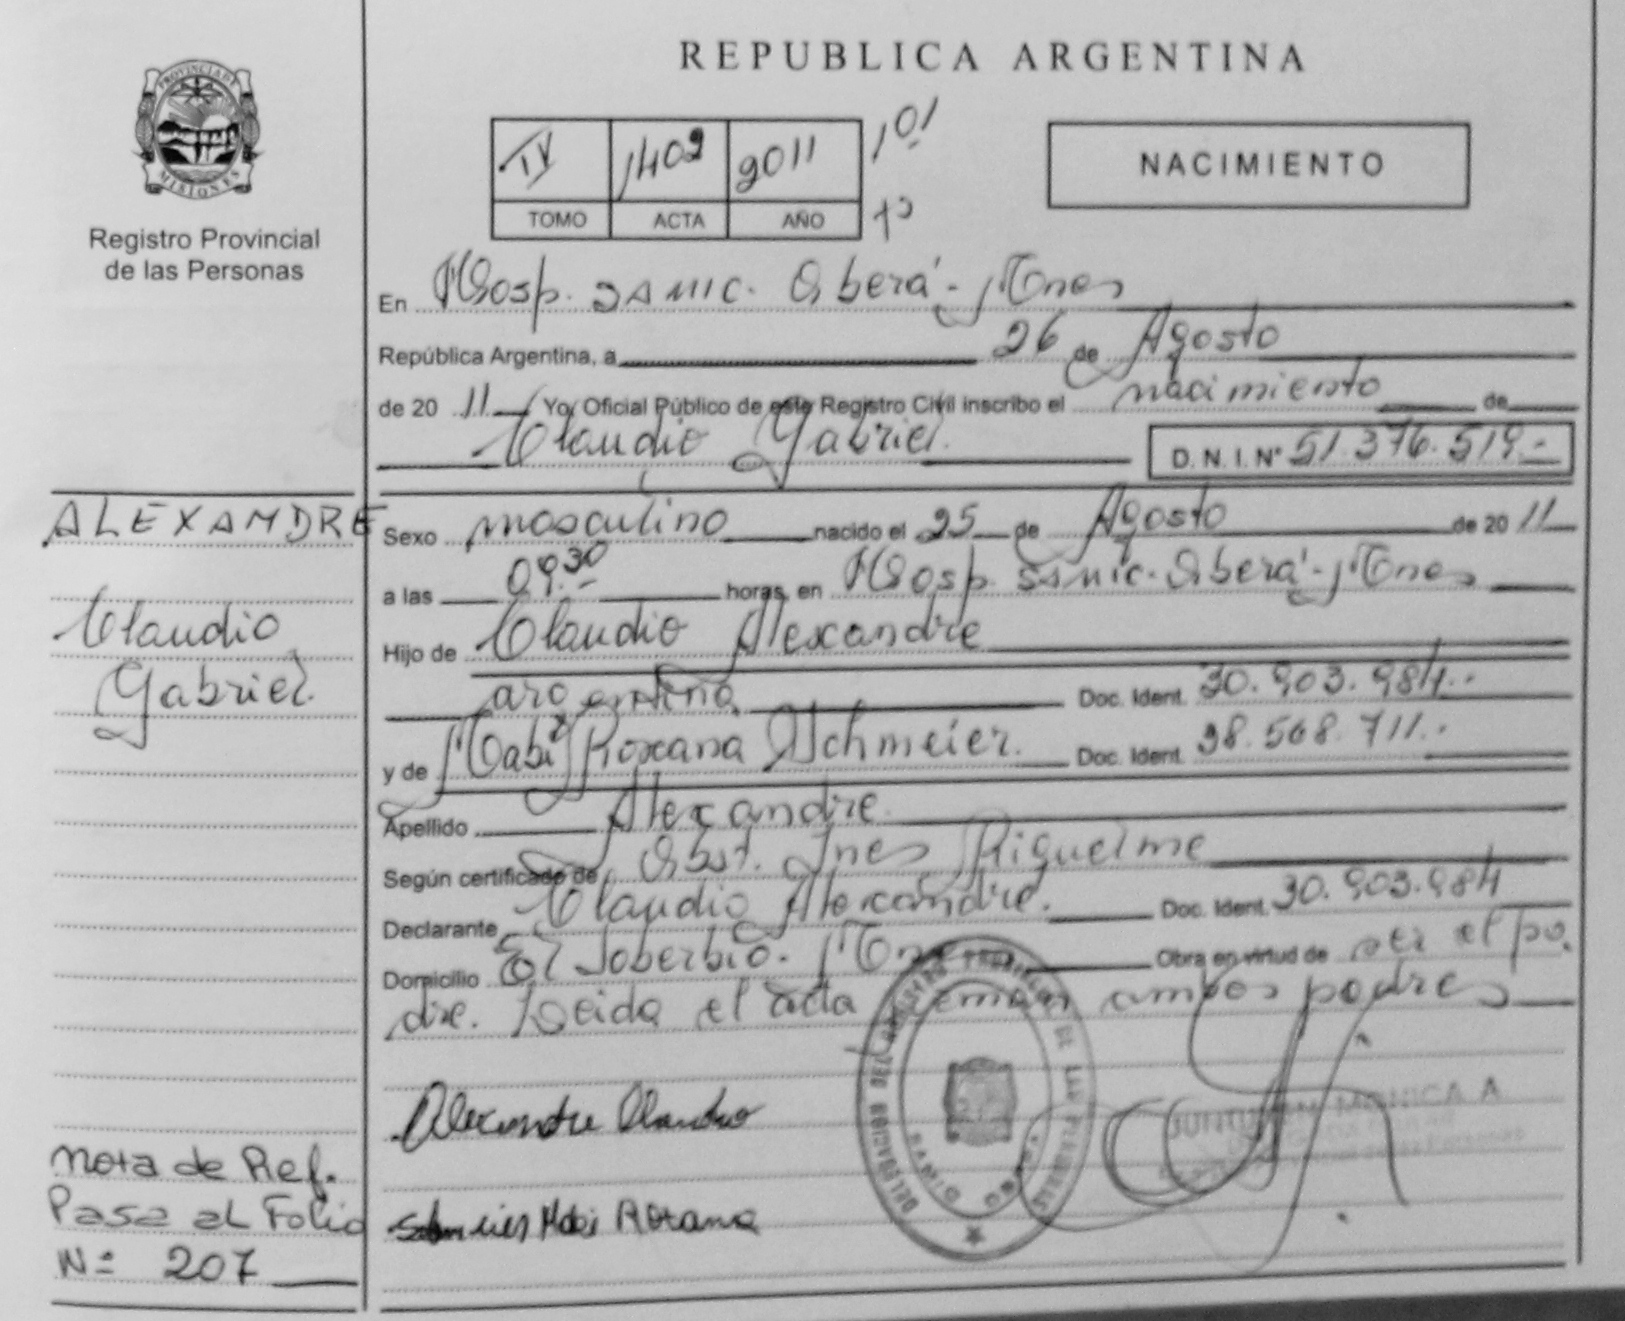 REPUBLICA ARGENTINA
PROVINCIA DE
MISIONES
Registro Provincial
de las Personas
IV 1402 2011 101
TOMO ACTA AÑO
NACIMIENTO
En Hosp. SAMIC. Oberá - Mnes
República Argentina, a 26 de Agosto
de 20 11 Yo, Oficial Público de este Registro Civil inscribo el nacimiento de
Claudio Gabriel. D.N.I. Nº 51.376.519.-
ALEXANDRE
Claudio
Gabriel.
Sexo masculino nacido el 25 de Agosto de 20 11
a las 09.30 horas, en Hosp. SAMIC. Oberá - Mnes
Hijo de Claudio Alexandre
argentina Doc. Ident. 30.903.984..
y de Mabi Roxana Schmeier. Doc. Ident. 38.568.711..
Apellido Alexandre.
Según certificado de Obst. Ines Riquelme
Declarante Claudio Alexandre. Doc. Ident. 30.903.984
Domicilio El Soberbio. Mnes Obra en virtud de ser el pa
dre. Leida el acta firman ambos padres
Alexandre Claudio
Mabi Roxana
MONICA A
Nota de Ref.
Pasa al Folio
Nº 207